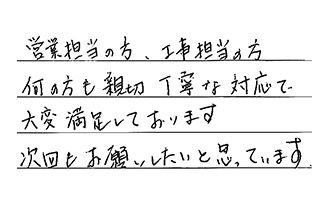 営業担当の方、工事担当の方
何の方も親切 丁寧な対応で
大変満足しております
次回もお願いしたいと思っています。